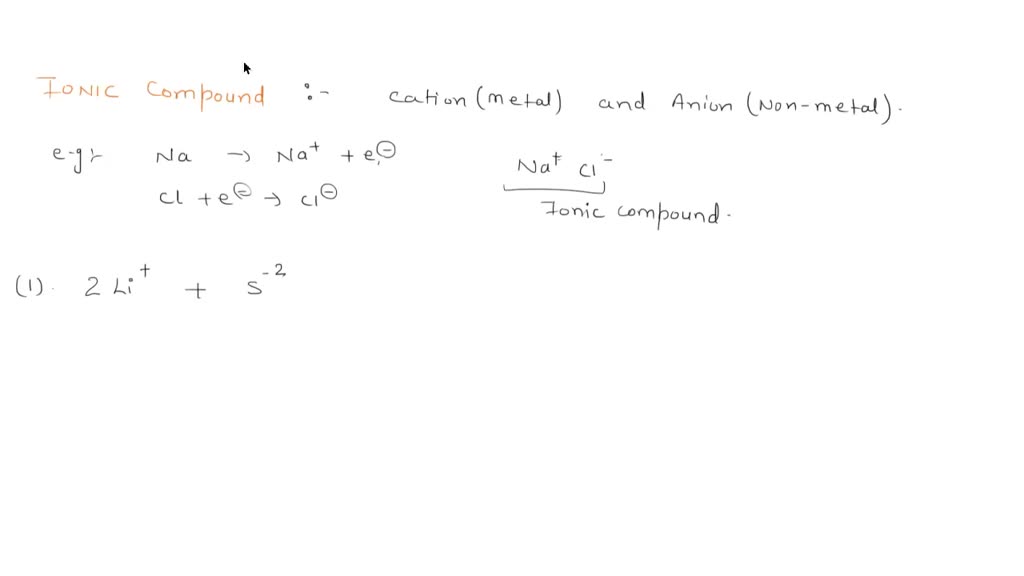 IONIC Compound :- cation (metal) and Anion (Non-metal).
e-g:- Na → Na⁺ + e⊖
Cl + e⊖ → Cl⊖
Na⁺ Cl⁻
Ionic compound.
(1). 2 Li⁺ + S⁻²